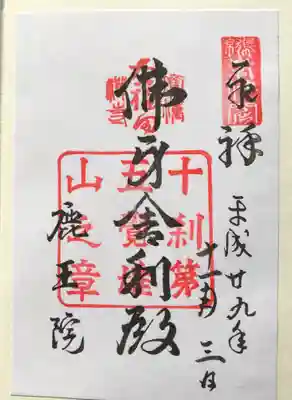 奉拝
平成廿九年
十一月三日
佛牙舎利殿
鹿王院
十刹第
五覚雄
山之章